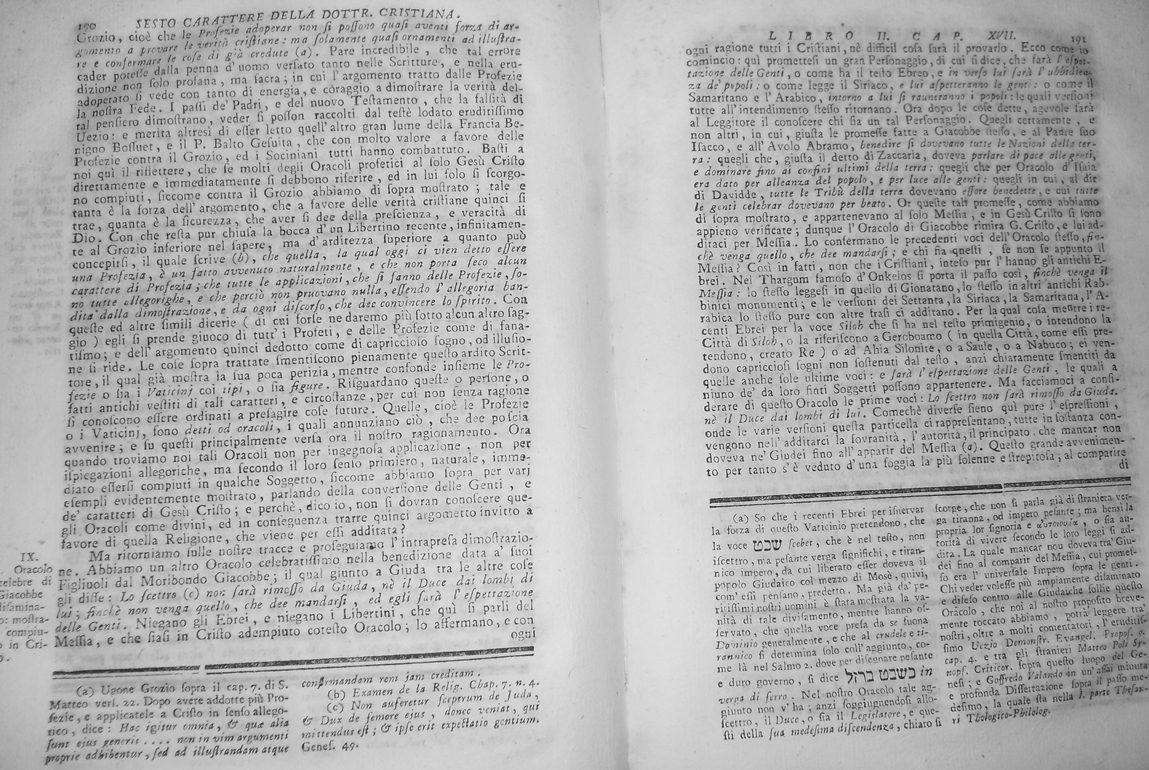 190 SESTO CARATTERE DELLA DOTTR. CRISTIANA.
Grozio, cioè che le Profezie adoperar non si possono quasi aventi forza di ar-
gomento a provare le verità cristiane: ma solamente quasi ornamenti ad illustra-
re e confermare le cose di già credute (a). Pare incredibile, che tal errore
cader potesse dalla penna d'uomo versato tanto nelle Scritture, e nella eru-
dizione non solo profana, ma sacra; in cui l'argomento tratto dalle Profezie
adoperato si vede con tanto di energia, e coraggio a dimostrare la verità del-
la nostra Fede. I passi de' Padri, e del nuovo Testamento, che la falsità di
tal pensiero dimostrano, veder si posson raccolti dal testè lodato eruditissimo
Uezio: e merita altresì di esser letto quell'altro gran lume della Francia Be-
nigno Bossuet, e il P. Balto Gesuita, che con molto valore a favore delle
Profezie contra il Grozio, ed i Sociniani tutti hanno combattuto. Basti a
noi quì il riflettere, che se molti degli Oracoli profetici al solo Gesù Cristo
direttamente e immediatamente si debbono riferire, ed in lui solo si scorgo-
no compiuti, siccome contra il Grozio abbiamo di sopra mostrato; tale e
tanta è la forza dell'argomento, che a favore delle verità cristiane quinci si
trae, quanta è la sicurezza, che aver si dee della prescienza, e veracità di
Dio. Con che resta pur chiusa la bocca d'un Libertino recente, infinitamen-
te al Grozio inferiore nel sapere, ma d'arditezza superiore a quanto può
concepirsi, il quale scrive (b), che quella, la qual oggi ci vien detto essere
una Profezia, è un fatto avvenuto naturalmente, e che non porta seco alcun
carattere di Profezia; che tutte le applicazioni, che si fanno delle Profezie, so-
no tutte allegorighe, e che perciò non pruovano nulla, essendo l'allegoria ban-
dita dalla dimostrazione, e da ogni discorso, che dee convincere lo spirito. Con
queste ed altre simili dicerie (di cui forse ne daremo più sotto alcun altro sag-
gio) egli si prende giuoco di tutt'i Profeti, e delle Profezie come di fana-
tismo; e dell'argomento quinci dedotto come di capriccioso sogno, od illusio-
ne si ride. Le cose sopra trattate smentiscono pienamente questo ardito Scrit-
tore, il qual già mostra la sua poca perizia, mentre confonde insieme le Pro-
fezie o sia i Vaticinj coi tipi, o sia figure. Risguardano queste o persone, o
fatti antichi vestiti di tali caratteri, e circostanze, per cui non senza ragione
si conoscono essere ordinati a presagire cose future. Quelle, cioè le Profezie
o i Vaticinj, sono detti od oracoli, i quali annunziano ciò, che dee poscia
avvenire; e su questi principalmente versa ora il nostro ragionamento. Ora
quando troviamo noi tali Oracoli non per ingegnosa applicazione, non per
ispiegazioni allegoriche, ma secondo il loro senso primiero, naturale, imme-
diato essersi compiuti in qualche Soggetto, siccome abbiamo sopra per varj
esempli evidentemente mostrato, parlando della conversione delle Genti, e
de' caratteri di Gesù Cristo; e perchè, dico io, non si dovran conoscere que-
gli Oracoli come divini, ed in conseguenza trarre quinci argometto invitto a
favore di quella Religione, che viene per essi additata?
Ma ritorniamo sulle nostre tracce e proseguiamo l'intrapresa dimostrazio-
ne. Abbiamo un altro Oracolo celebratissimo nella benedizione data a' suoi
Figliuoli dal Moribondo Giacobbe; il qual giunto a Giuda tra le altre cose
gli disse: Lo scettro (c) non sarà rimosso da Giuda, nè il Duce dai lombi di
lui; finchè non venga quello, che dee mandarsi, ed egli sarà l'espettazione
delle Genti. Niegano gli Ebrei, e niegano i Libertini, che quì si parli del
Messia, e che siasi in Cristo adempiuto cotesto Oracolo; lo affermano, e con
ogni
IX.
Oracolo
celebre di
Giacobbe
disamina-
o: mostra-
compiu-
in Cri-
o.
(a) Ugone Grozio sopra il cap. 7. di S.
Matteo vers. 22. Dopo avere addotte più Pro-
fezie, e applicatele a Cristo in senso allego-
rico, dice: Hac igitur omnia, & quæ alia
sunt ejus generis .... non in vim argumenti
proprie adhibentur, sed ad illustrandam atque
confirmandam rem jam creditam.
(b) Examen de la Relig. Chap. 7. n. 4.
(c) Non auferetur sceptrum de Juda,
& Dux de femore ejus, donec veniat, qui
mittendus est; & ipse erit expectatio gentium.
Genes. 49.
LIBRO II. CAP. XVII. 191
ogni ragione tutti i Cristiani, nè difficil cosa sarà il provarlo. Ecco come io
comincio: quì promettesi un gran Personaggio, di cui si dice, che sarà l'espet-
tazione delle Genti, o come ha il testo Ebreo, e in verso lui sarà l'ubbidien-
za de' popoli: o come legge il Siriaco, e lui aspetteranno le genti: o come il
Samaritano e l'Arabico, intorno a lui si rauneranno i popoli: le quali versioni
tutte all'intendimento stesso tornano. Ora dopo le cose dette, agevole sarà
al Leggitore il conoscere chi sia un tal Personaggio. Quegli certamente, e
non altri, in cui, giusta le promesse fatte a Giacobbe stesso, e al Padre suo
Isacco, e all'Avolo Abramo, benedire si dovevano tutte le Nazioni delle ter-
ra: quegli che, giusta il detto di Zaccaria, doveva parlare di pace alle genti,
e dominare fino ai confini ultimi della terra: quegli che per Oracolo d'Isaia
era dato per alleanza del popolo, e per luce alle genti: quegli in cui, al dir
di Davidde, tutte le Tribù della terra dovevano essere benedette, e cui tutte
le genti celebrar dovevano per beato. Or queste tali promesse, come abbiamo
di sopra mostrato, e appartenevano al solo Messia, e in Gesù Cristo si sono
appieno verificate; dunque l'Oracolo di Giacobbe rimira G. Cristo, e lui ad-
ditaci per Messia. Lo confermano le precedenti voci dell'Oracolo stesso, fin-
chè venga quello, che dee mandarsi; e chi fia questi, se non se appunto il
Messia? Così in fatti, non che i Cristiani, inteso pur l'hanno gli antichi E-
brei. Nel Thargum famoso d'Onkelos si porta il passo così, finchè venga il
Messia: lo stesso leggesi in quello di Gionatano, lo stesso in altri antichi Rab-
binici monumenti; e le versioni dei Settanta, la Siriaca, la Samaritana, l'A-
rabica lo stesso pure con altre frasi ci additano. Per la qual cosa mentre i re-
centi Ebrei per la voce Siloh che si ha nel testo primigenio, o intendono la
Città di Siloh, o la riferiscono a Geroboamo (in quella Città, come essi pre-
tendono, creato Re) o ad Ahia Silonite, o a Saule, o a Nabuco; ei ven-
dono capricciosi sogni non sostenuti dal testo, anzi chiaramente smentiti da
quelle anche sole ultime voci: e sarà l'espettazione delle Genti, le quali a
niuno de' da loro finti Soggetti possono appartenere. Ma facciamoci a consi-
derare di questo Oracolo le prime voci: Lo scettro non sarà rimosso da Giuda,
nè il Duce dai lombi di lui. Comechè diverse sieno quì pure l'espressioni,
onde le varie versioni questa particella ci rappresentano, tutte in sostanza con-
vengono nell'additarci la sovranità, l'autorità, il principato, che mancar non
doveva ne' Giudei fino all'apparir del Messia (a). Questo grande avvenimen-
to per tanto s'è veduto d'una foggia la più solenne e strepitosa; al comparire
di
(a) So che i recenti Ebrei per isnervar
la forza di questo Vaticinio pretendono, che
la voce שבט scebet, che è nel testo, non
iscettro, ma pesante verga significhi, e tiran-
nico impero, da cui liberato esser doveva il
popolo Giudaico col mezzo di Mosè, quivi,
com' essi pensano, predetto. Ma già da' pe-
ritissimi nostri uomini è stata mostrata la va-
nità di tale divisamento, mentre hanno os-
servato, che quella voce presa da se suona
Dominio generalmente, e che al crudele e ti-
rannico si determina solo coll'aggiunto, co-
me là nel Salmo 2. dove per disegnare pesante
e duro governo, si dice בשבט ברזל in
verga di ferro. Nel nostro Oracolo tale ag-
giunto non v'ha; anzi soggiugnendosi allo
scettro, il Duce, o sia il Legislatore, e que-
sti della sua medesima discendenza, chiaro si
scorge, che non si parla già di straniera ver-
ga tiranna, od impero pesante; ma bensì la
propria lor signoria e ἀυτονομία, o sia au-
torità di vivere secondo le loro leggi si ad-
dita. La quale mancar non doveva tra' Giu-
dei fino al comparir del Messia, cui promes-
so era l'universale Impero sopra le genti.
Chi veder volesse più ampiamente disaminato
e difeso contro alle Giudaiche follie questo
Oracolo, che noi al nostro proposito breve-
mente toccato abbiamo, potrà leggere tra'
nostri, oltre a molti comentatori, l'eruditis-
simo Uezio Demonstr. Evangel. Propos. 9.
cap. 4. e tra gli stranieri Matteo Polo Sy-
nops. Criticor. sopra questo luogo del Ge-
nesi; e Goffredo Valando in un'assai minuta
e profonda Dissertazione sopra il passo me-
desimo, la quale sta nella I. parte Thesau-
ri Theologico-Philolog.